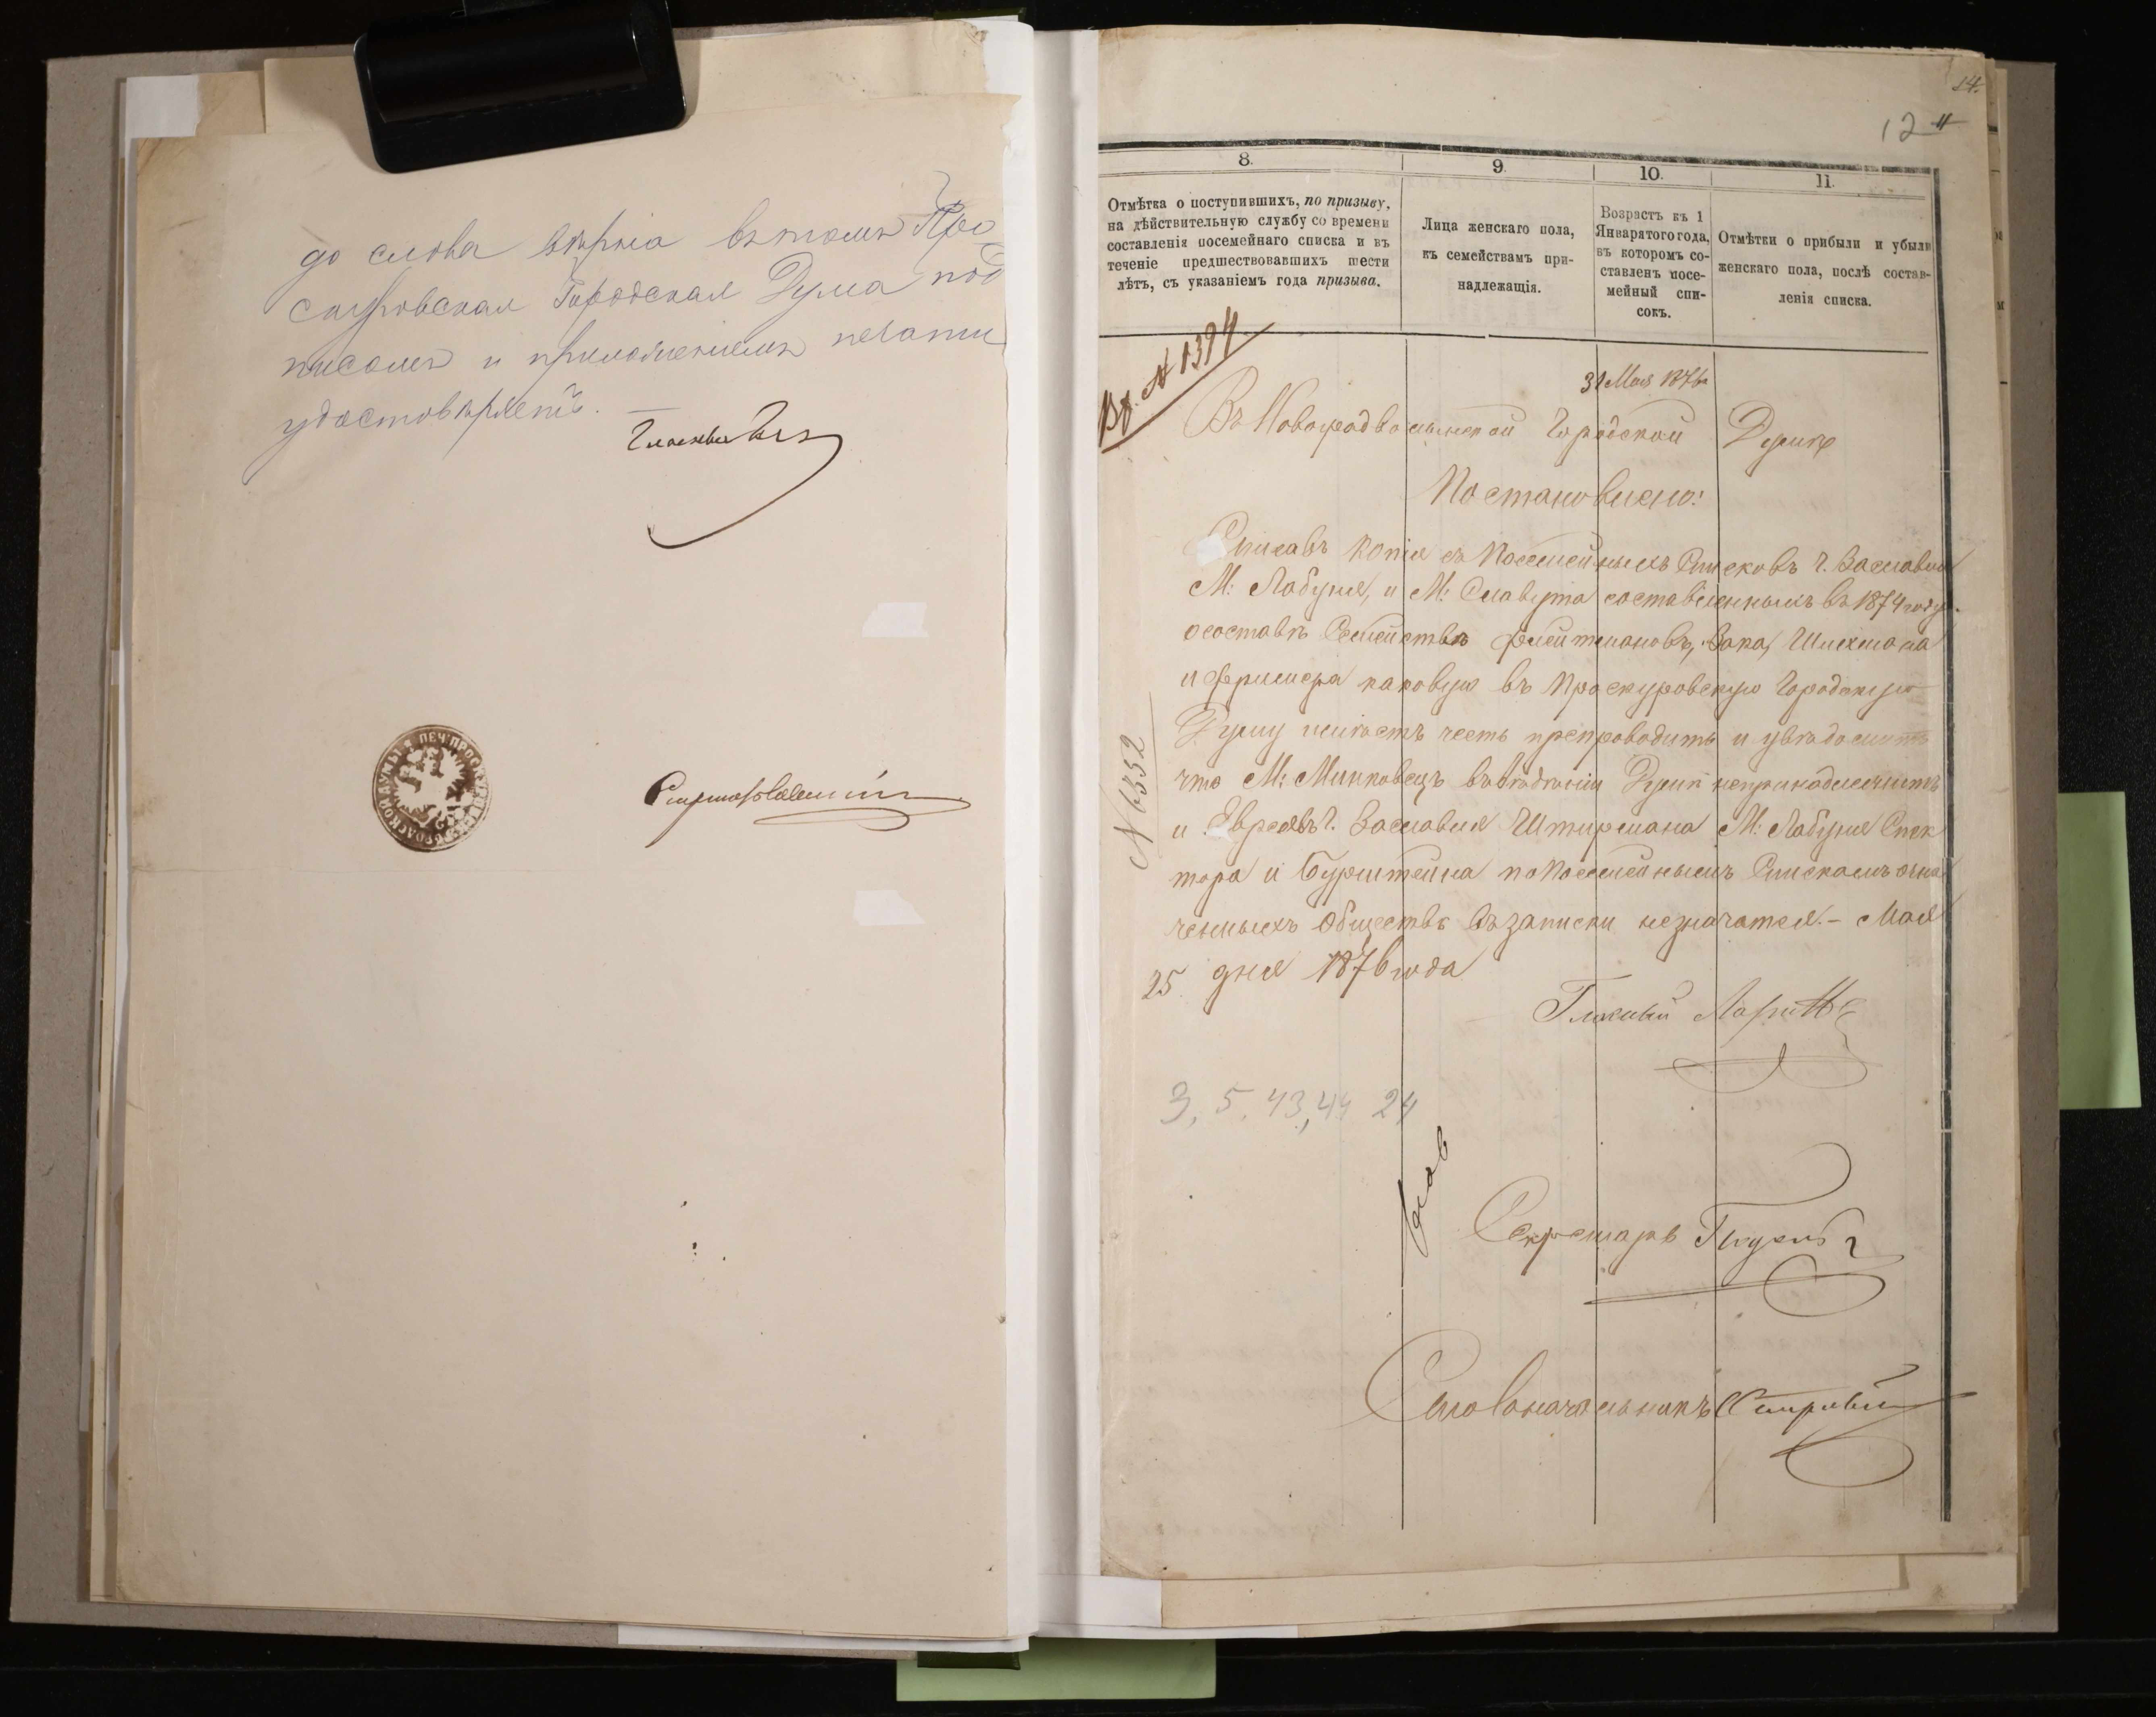 до слова вѣрна въ томъ Про
скуровская Городская Дума под
писомъ и приложеніемъ печати
удостовѣряетъ. —
14.
12
8.
9.
10.
11.
Отмѣтка о поступившихъ, по призыву,
на дѣйствительную службу со времени
составленія посемейнаго списка и въ
теченіе предшествовавшихъ шести
лѣтъ, съ указаніемъ года призыва.
Лица женскаго пола,
къ семействамъ при-
надлежащія.
Возрастъ къ 1
Января того года,
въ которомъ со-
ставленъ посе-
мейный спи-
сокъ.
Отмѣтки о прибыли и убыли
женскаго пола, послѣ состав-
ленія списка.
Вх. № 1394
31 Мая 1876
Въ Новоградволынской Городской Думѣ
Постановлено:
Списавъ копіи съ Посемейныхъ Списковъ г. Заславля
М: Лабуня, и М: Славута составленныхъ въ 1874 году
о составѣ Семействъ Флейтмановъ, Зака, Шлехмана
и Фримера каковую въ Проскуровскую Городскую
Думу имѣетъ честь препроводить и увѣдомить
что М: Миньковецъ въ вѣдѣніи Думы непринадлежитъ
и Евреевъ г. Заславля Штирмана М: Лабуня Спек
тора и Бурштейна по Посемейнымъ Спискамъ озна
ченныхъ Обществъ въ записки незначатся. — Мая
25 дня 1876 года
№ 6352
Гласный
3, 5, 43, 44 24
Секретарь
Столоначальникъ